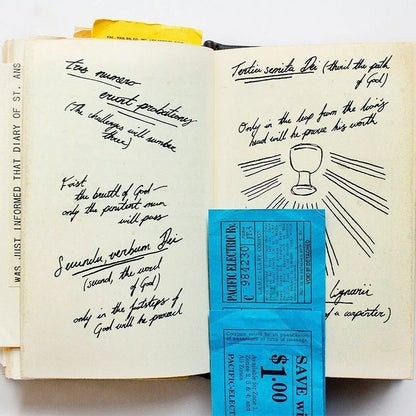 tres numero
erunt probationes
(The challenges will number
three)
First
the breath of God—
only the penitent man
will pass
Secunda, verbum Dei
(second, the word
of God)
only in the footsteps of
God will he proceed
Tertia semita Dei (third the path
of God)
Only in the leap from the lion's
head will he prove his worth
lignarii
of a carpenter)
WAS JUST INFORMED THAT DIARY OF ST. ANS
PACIFIC ELECTRIC Ry.
C 984230
SAVE wi
$1.00
Available for Zone
Zones 2, 3, 4, and
PACIFIC-ELECT